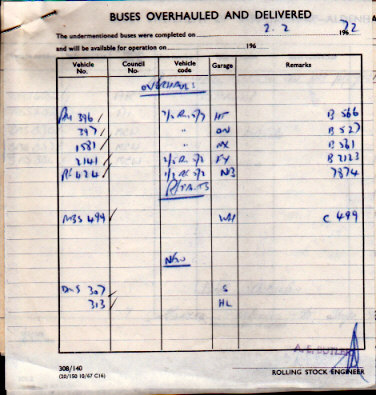 BUSES OVERHAULED AND DELIVERED
The undermentioned buses were completed on 2.2 1972
and will be available for operation on 196
Vehicle No. Council No. Vehicle code Garage Remarks
OVERHAULS
396 HT B 566
397 " ON B 527
1581 " NX B 561
2141 FY B 2123
424 NB 7374
R/PAINTS
MBS 499 WH C 499
NEW
DMS 307 S
313 HL
A. E. BUTLER
308/140
(20/150 10/67 C16)
ROLLING STOCK ENGINEER